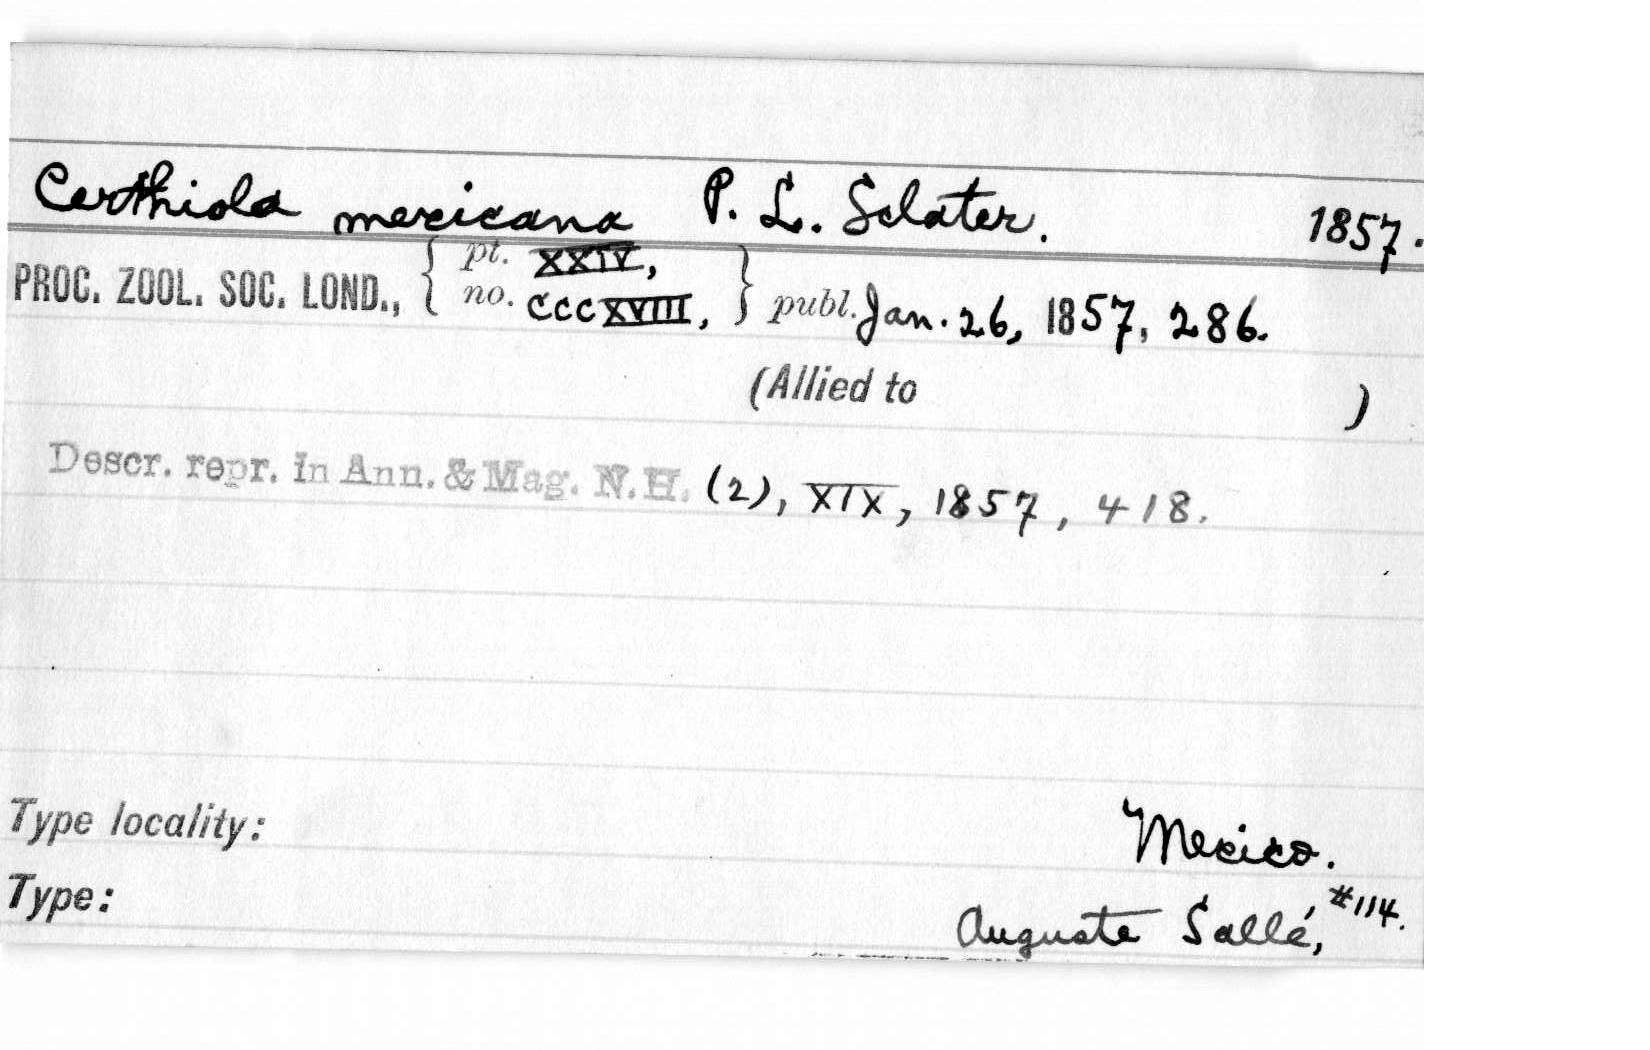 Certhiola mexicana P. L. Sclater. 1857.
PROC. ZOOL. SOC. LOND., { pt. XXIV, no. CCCXVIII, } publ. Jan. 26, 1857, 286.
(Allied to )
Descr. repr. in Ann. & Mag. N.H. (2), XIX, 1857, 418.
Type locality: Mexico.
Type: Auguste Sallé, #114.